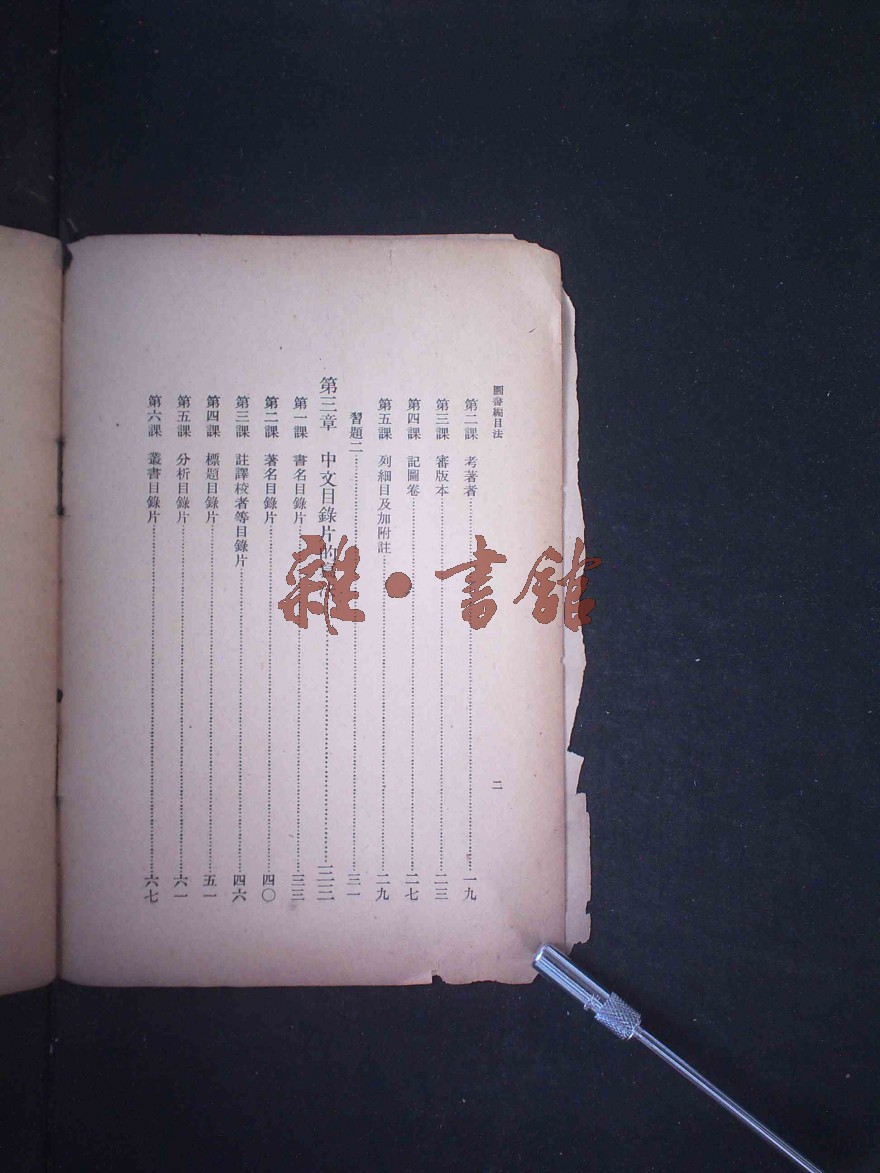 圖書編目法
二
第二課 考著者 一九
第三課 審版本 二三
第四課 記圖卷 二七
第五課 列細目及加附註 二九
習題二 三一
第三章 中文目錄片的 三三
第一課 書名目錄片 三三
第二課 著名目錄片 四〇
第三課 註譯校者等目錄片 四六
第四課 標題目錄片 五一
第五課 分析目錄片 六一
第六課 叢書目錄片 六七
雜·書館